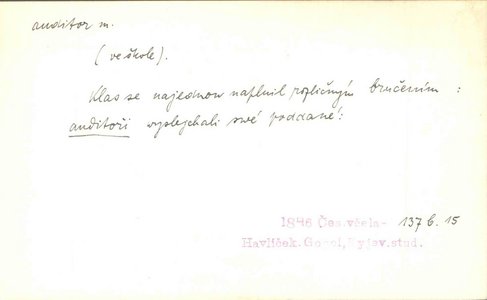 auditor m.
(ve škole).
Klas se najednou naplnil rozličným bručením :
auditoři vyslejchali své poddané:
1846 Čes.včela- 137 b. 15
Havlíček. Gogol, Kyjev.stud.